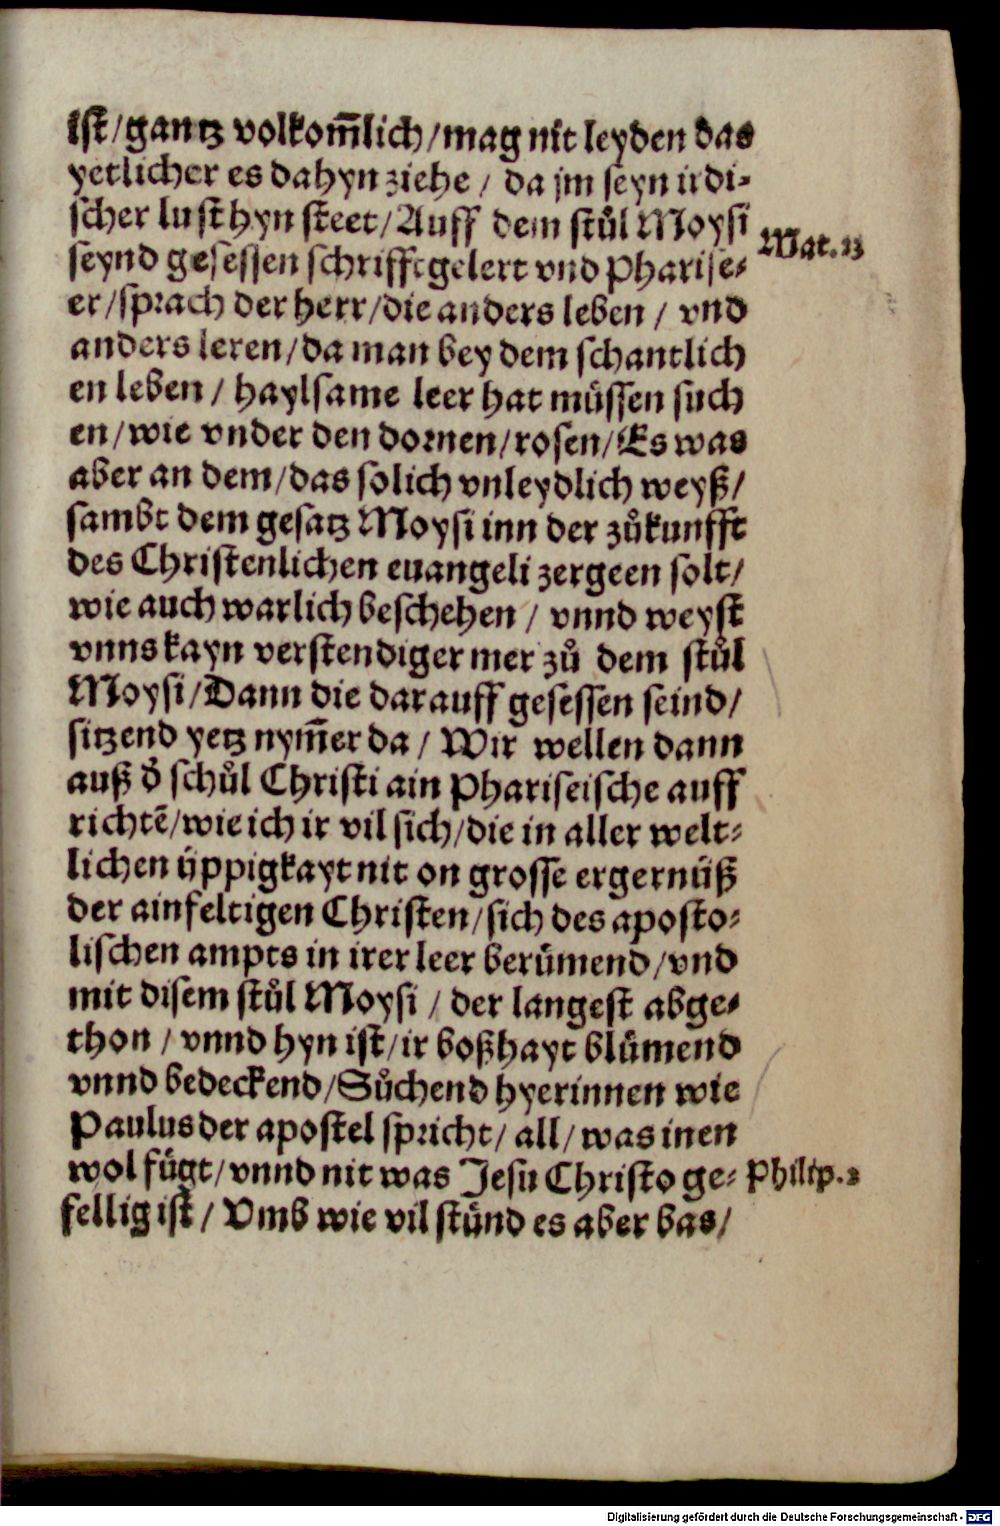 ist/gantz volkom̃lich/mag nit leyden das
yetlicher es dahyn ziehe / da jm seyn irdi⸗
scher lust hyn steet/Auff dem stůl Moysi
Mat. 23
seynd gesessen schrifftgelert vnd Pharise⸗
er/sprach der herr/die anders leben / vnd
anders leren/da man bey dem schantlich
en leben / haylsame leer hat müssen such
en/wie vnder den dornen/rosen/Es was
aber an dem/das solich vnleydlich weyß/
sambt dem gesatz Moysi inn der zůkunfft
des Christenlichen euangeli zergeen solt/
wie auch warlich beschehen / vnnd weyst
vnns kayn verstendiger mer zů dem stůl
Moysi/Dann die darauff gesessen seind/
sitzend yetz nym̃er da / Wir wellen dann
auß d̕ schůl Christi ain Phariseische auff
richtē/wie ich ir vil sich/die in aller welt⸗
lichen üppigkayt nit on grosse ergernüß
der ainfeltigen Christen/sich des aposto⸗
lischen ampts in irer leer berümend/vnd
mit disem stůl Moysi / der langest abge⸗
thon / vnnd hyn ist/ir boßhayt blümend
vnnd bedeckend/Sůchend hyerinnen wie
Paulus der apostel spricht/ all/was inen
wol fügt/vnnd nit was Jesu Christo ge⸗
Philip. 2
fellig ist / Vmb wie vil stünd es aber bas/
Digitalisierung gefördert durch die Deutsche Forschungsgemeinschaft - DFG